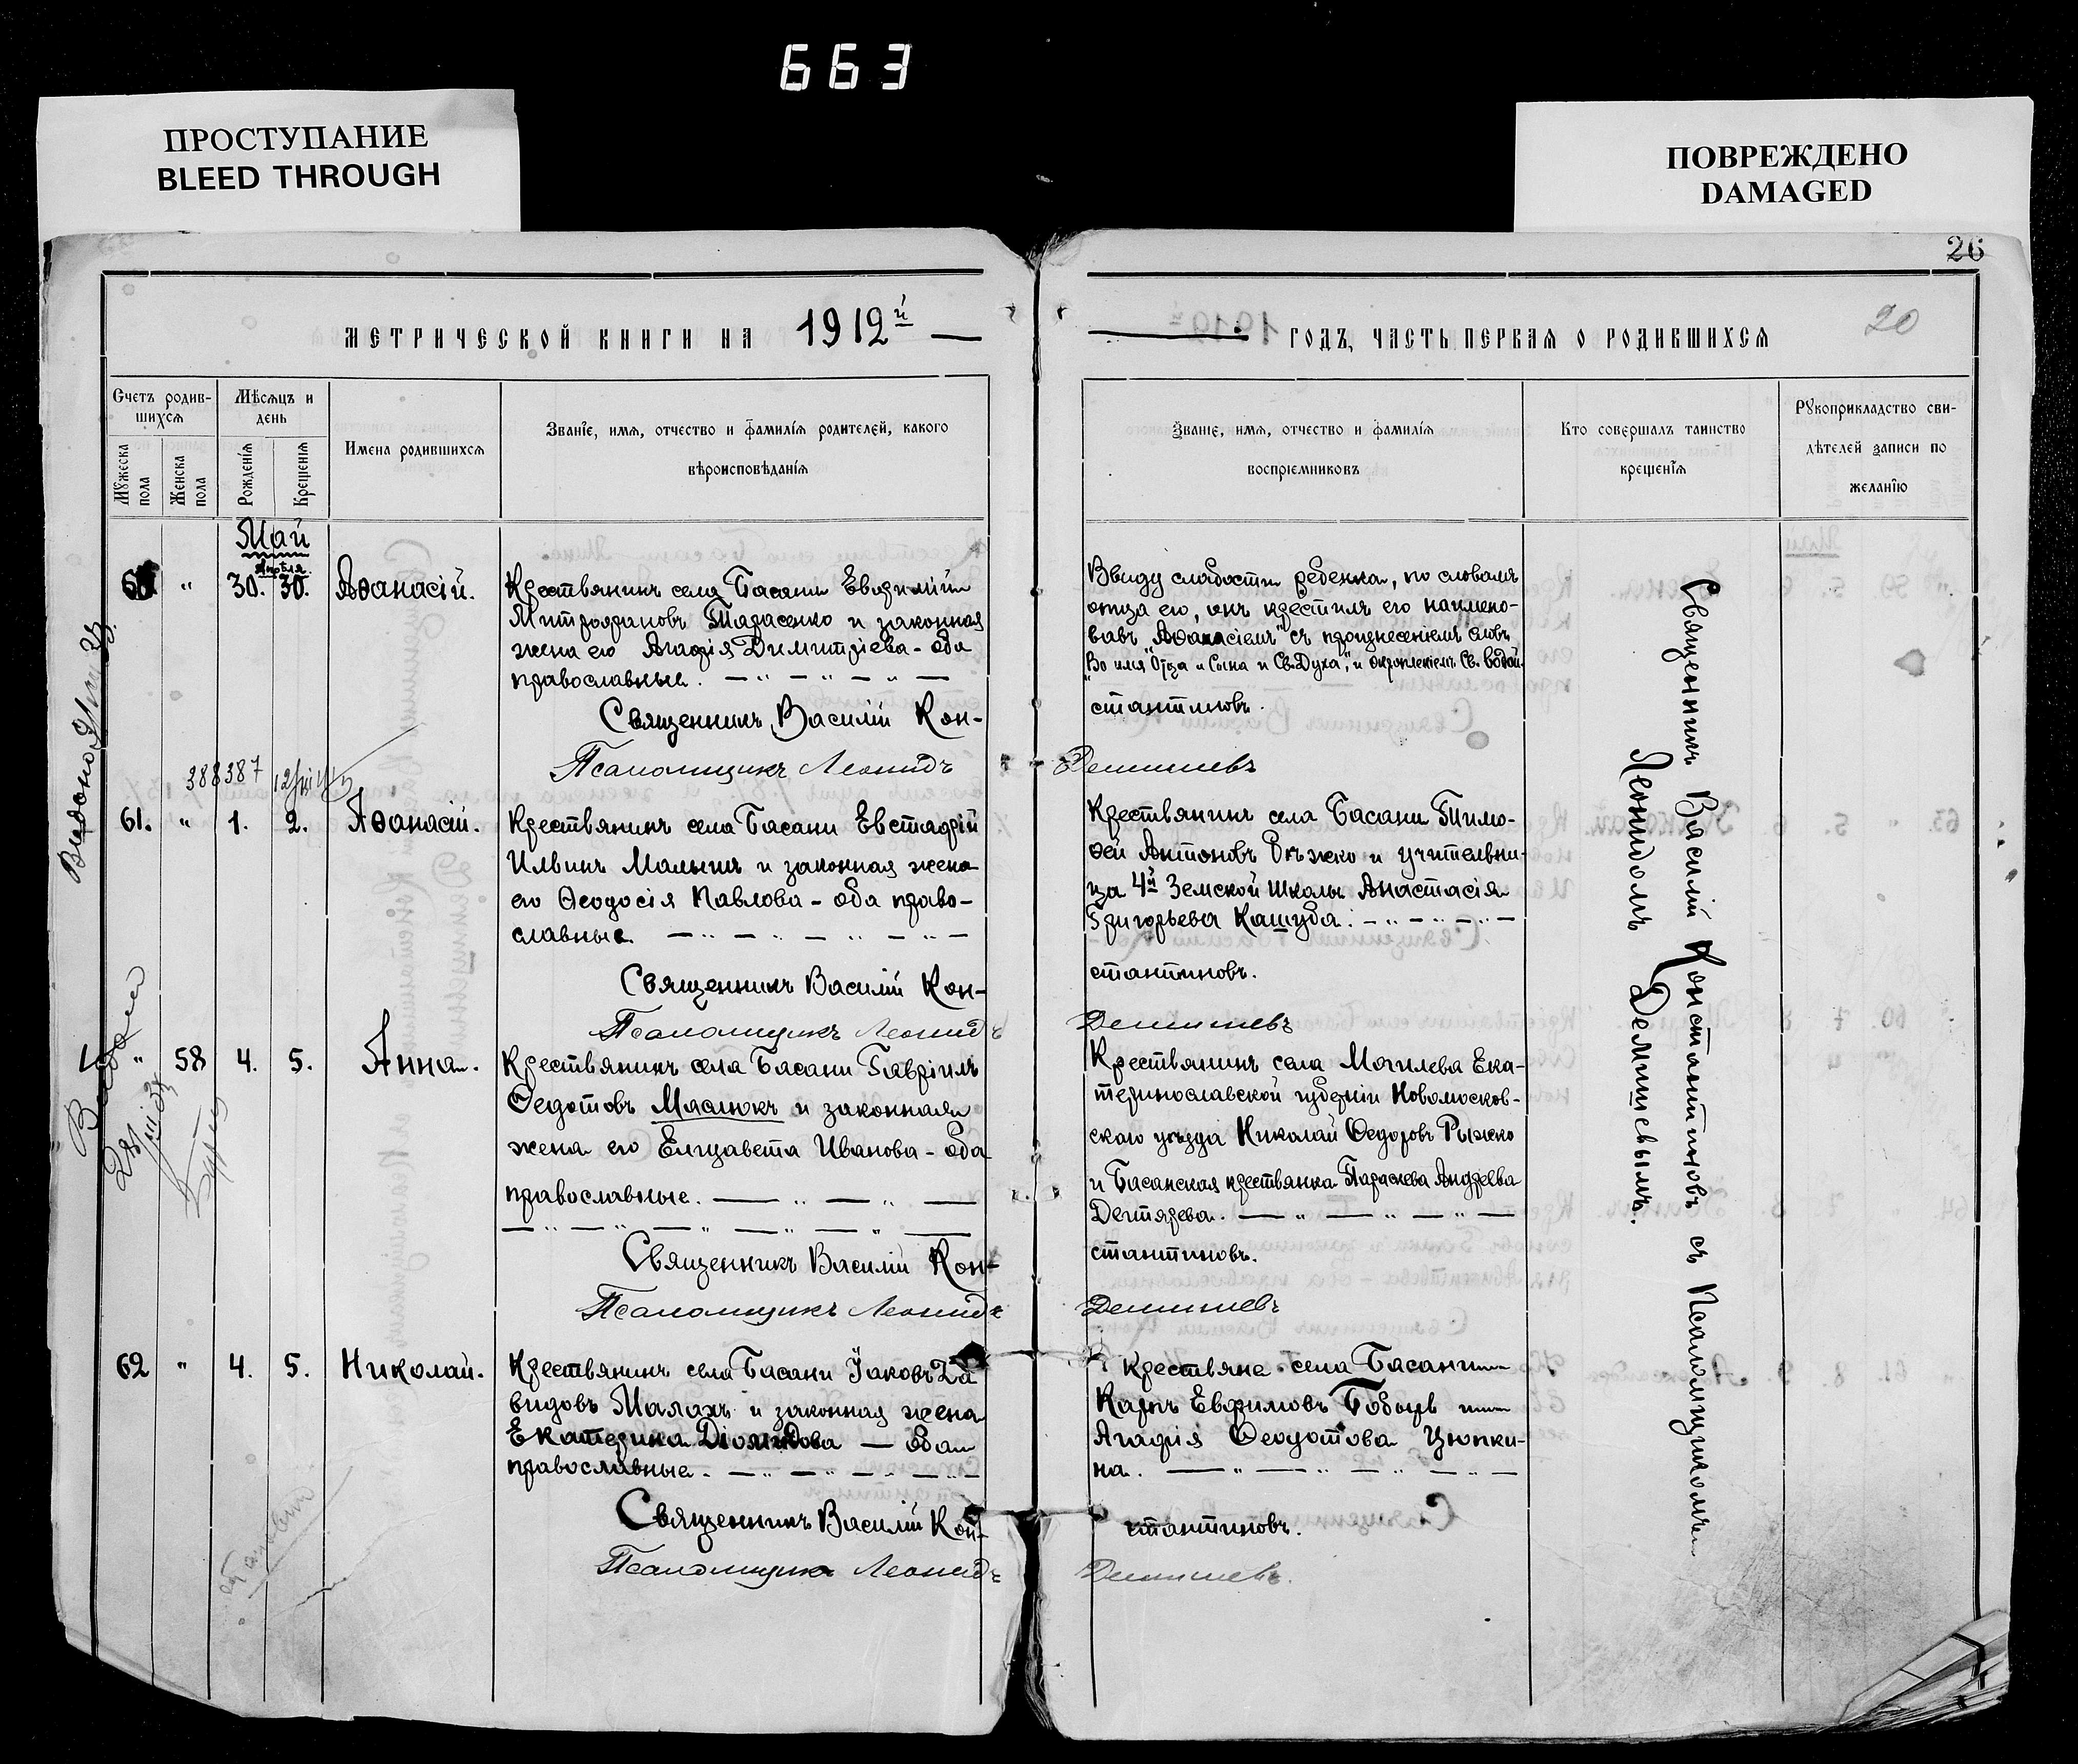 663
ПРОСТУПАНИЕ
BLEED THROUGH
ПОВРЕЖДЕНО
DAMAGED
26
20
МЕТРИЧЕСКОЙ КНИГИ НА 1912й
ГОДЪ, ЧАСТЬ ПЕРВАЯ О РОДИВШИХСЯ
Счетъ родив-
шихся
Мужеска пола
Женска пола
Мѣсяцъ и
день
Рожденія
Крещенія
Имена родившихся
Званіе, имя, отчество и фамилія родителей, какого
вѣроисповѣданія
Званіе, имя, отчество и фамилія
воспріемниковъ
Кто совершалъ таинство
крещенія
Рукоприкладство сви-
дѣтелей записи по
желанію
Май
Апрѣля.
60. " 30. 30. Аѳанасій.
Крестьянинъ села Басани Евфимій
Митрофановъ Тарасенко и законная
жена его Агафія Димитріева - оба
православные.
Священникъ Василій Кон-
Псаломщикъ Леонидъ
Ввиду слабости ребенка, по словамъ
отца его, онъ крестилъ его наимено-
вавъ "Аѳанасіемъ" съ произнесеніемъ словъ
"Во имя Отца и Сына и Св. Духа", и окропленіемъ Св. водой.
стантиновъ.
Демишевъ
388387
61. " 1. 2. Аѳанасій.
Крестьянинъ села Басани Евстафій
Ильинъ Малышъ и законная жена
его Ѳеодосія Павлова - оба право-
славные.
Священникъ Василій Кон-
Псаломщикъ Леонидъ
Крестьянинъ села Басани Тимо-
ѳей Антоновъ Рѣжко и учительни-
ца 4й Земской школы Анастасія
Григорьева Кашуба.
стантиновъ.
Демишевъ
" 58 4. 5. Анна.
Крестьянинъ села Басани Гавріилъ
Ѳедотовъ Маслюкъ и законная
жена его Елизавета Иванова - оба
православные.
Священникъ Василій Кон-
Псаломщикъ Леонидъ
Крестьянинъ села Могилева Ека-
теринославской губерніи Новомосков-
скаго уѣзда Николай Ѳедоровъ Рыжко
и Басанская крестьянка Параскева Андреева
Дегтярева.
стантиновъ.
Демишевъ
62 " 4. 5. Николай.
Крестьянинъ села Басани Іаковъ Да
видовъ Малахъ и законная жена
Екатерина Діомидова — оба
православные.
Священникъ Василій Кон-
Псаломщикъ Леонидъ
Крестьяне села Басани
Карпъ Евфимовъ Бобырь и
Агафія Ѳеодотова Цюпки-
на.
стантиновъ.
Демишевъ.
Священникъ Василій Константиновъ съ Псаломщикомъ
Леонидомъ Демишевымъ.